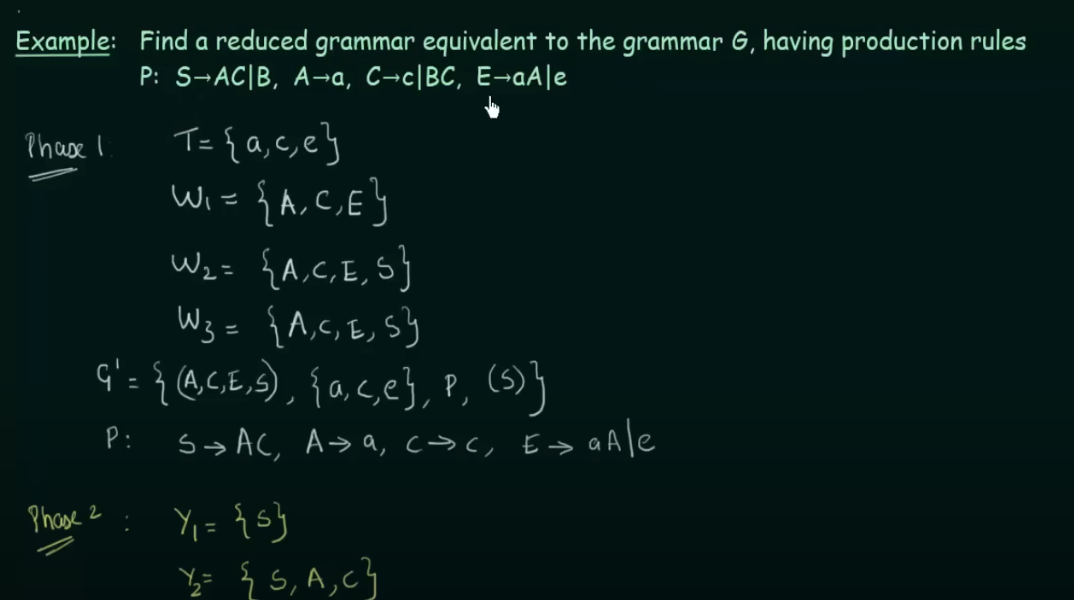 Example: Find a reduced grammar equivalent to the grammar G, having production rules
P: S→AC|B, A→a, C→c|BC, E→aA|e
Phase 1 T = {a, c, e}
W₁ = {A, C, E}
W₂ = {A, C, E, S}
W₃ = {A, C, E, S}
G' = {(A, C, E, S), {a, c, e}, P, (S)}
P: S → AC, A → a, C → c, E → aA|e
Phase 2 : Y₁ = {S}
Y₂ = {S, A, C}